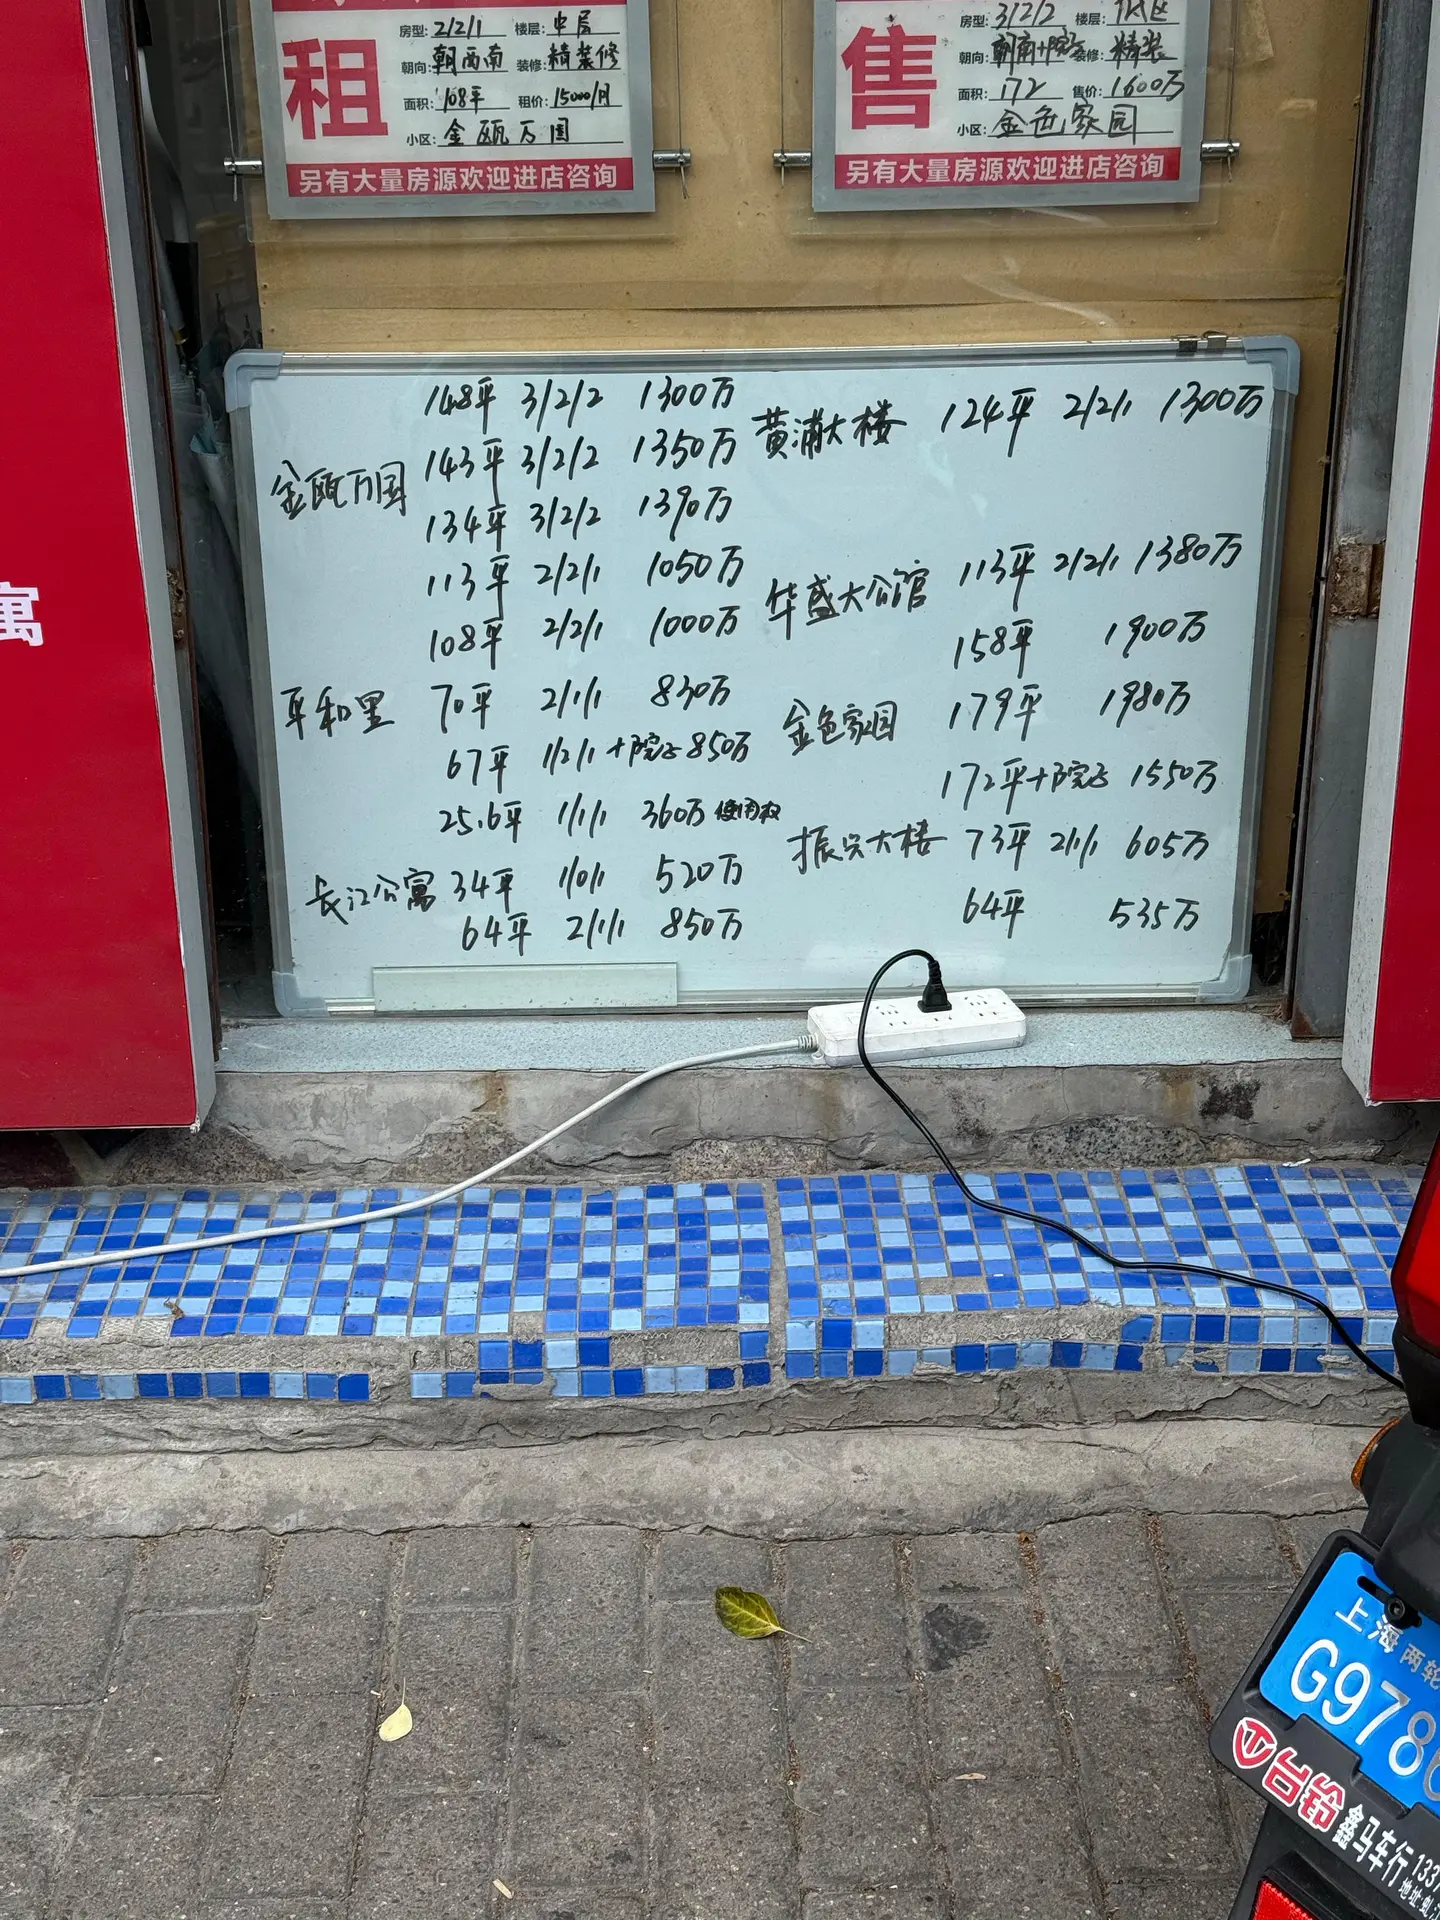 租
房型: 2/2/1 楼层: 中层
朝向: 朝西南 装修: 精装修
面积: 108平 租价: 15000/月
小区: 金瓯万国
另有大量房源欢迎进店咨询
售
房型: 3/2/2 楼层:
朝向: 朝南+院子 装修: 精装
面积: 172 售价: 1600万
小区: 金色家园
另有大量房源欢迎进店咨询
寓
148平 3/2/2 1300万
金瓯万国 143平 3/2/2 1350万
134平 3/2/2 1390万
113平 2/2/1 1050万
108平 2/2/1 1000万
平和里 70平 2/1/1 830万
67平 1/2/1 +院子 850万
25.6平 1/1/1 360万 使用权
长江公寓 34平 1/0/1 520万
64平 2/1/1 850万
黄浦大楼 124平 2/2/1 1300万
华盛大公馆 113平 2/2/1 1380万
158平 1900万
金色家园 179平 1980万
172平+院子 1550万
振兴大楼 73平 2/1/1 605万
64平 535万
上海 两轮
G978
台铃
鑫马车行 133
地址: